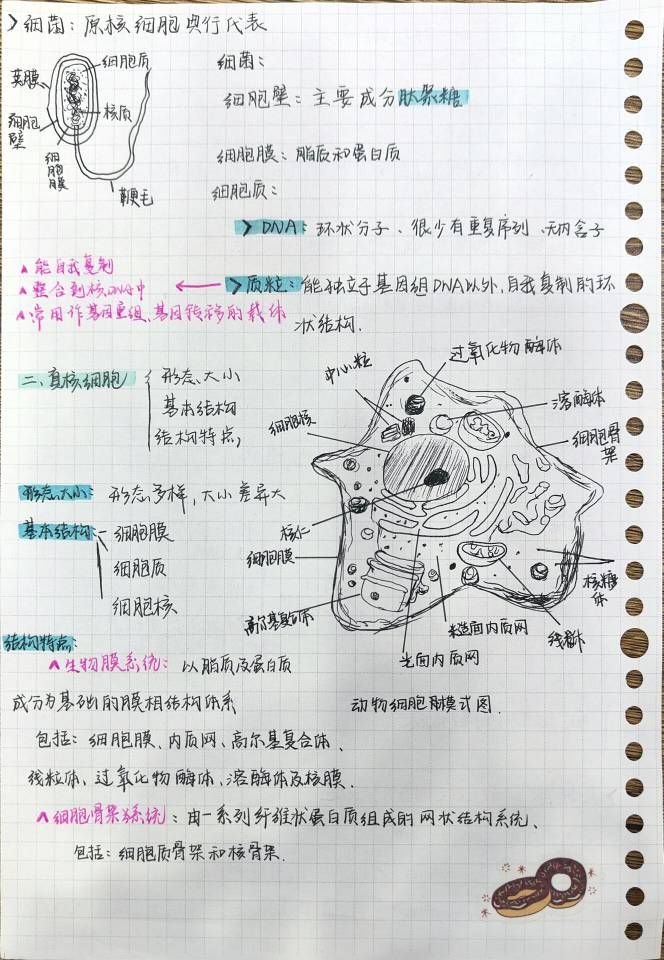 > 细菌：原核细胞典行代表
细胞质
荚膜
核质
细胞壁
细胞膜
鞭毛
细菌：
细胞壁：主要成分肽聚糖
细胞膜：脂质和蛋白质
细胞质：
> DNA：环状分子、很少有重复序列、无内含子
> 质粒：能独立于基因组DNA以外，自我复制的环
状结构.
▲能自我复制
▲整合到核DNA中
▲常用作基因重组、基因转移的载体
二、真核细胞
形态、大小
基本结构
结构特点
形态、大小：形态多样，大小差异大
基本结构
细胞膜
细胞质
细胞核
过氧化物酶体
中心粒
溶酶体
细胞核
细胞骨架
核仁
细胞膜
核糖体
高尔基复合体
糙面内质网
线粒体
光面内质网
动物细胞模式图.
结构特点：
∧生物膜系统：以脂质及蛋白质
成分为基础的膜相结构体系
包括：细胞膜、内质网、高尔基复合体、
线粒体、过氧化物酶体、溶酶体及核膜.
∧细胞骨架系统：由一系列纤维状蛋白质组成的网状结构系统、
包括：细胞质骨架和核骨架.